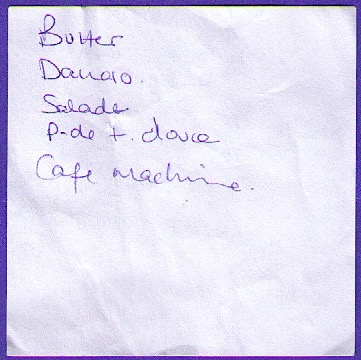 Butter
Danao.
Salade
P-de t. douce
Cafe machine.